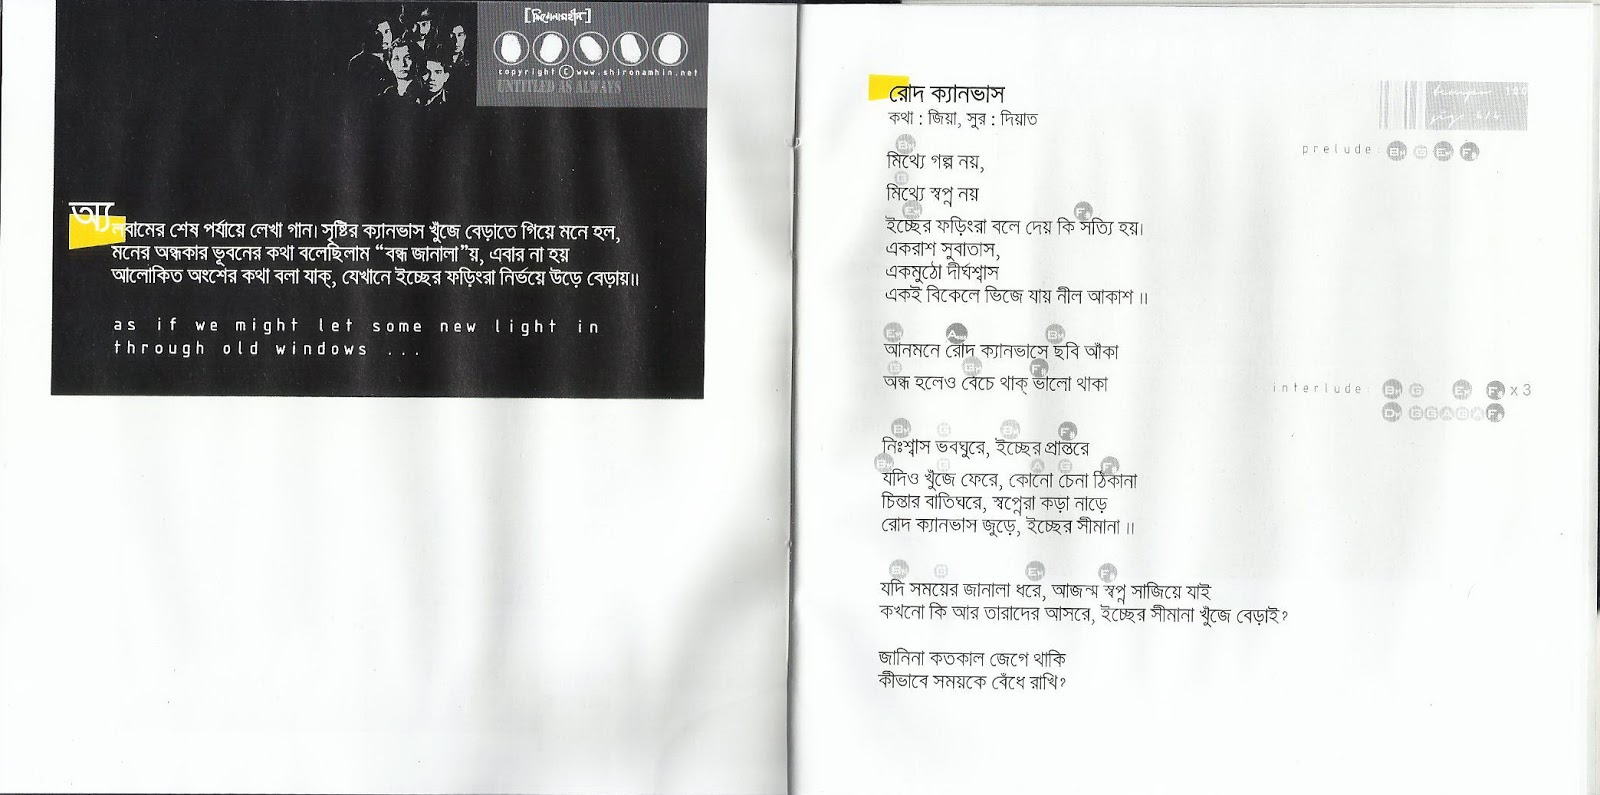 [শিরোনামহীন]
copyright © www.shironamhin.net
UNTITLED AS ALWAYS
অ্যালবামের শেষ পর্যায়ে লেখা গান। সৃষ্টির ক্যানভাস খুঁজে বেড়াতে গিয়ে মনে হল,
মনের অন্ধকার ভূবনের কথা বলেছিলাম “বন্ধ জানালা”য়, এবার না হয়
আলোকিত অংশের কথা বলা যাক্, যেখানে ইচ্ছের ফড়িংরা নির্ভয়ে উড়ে বেড়ায়।।
as if we might let some new light in
through old windows ...
রোদ ক্যানভাস
কথা : জিয়া, সুর : দিয়াত
prelude: Bm G Em F#
Bm
মিথ্যে গল্প নয়,
G
মিথ্যে স্বপ্ন নয়
Em F#
ইচ্ছের ফড়িংরা বলে দেয় কি সত্যি হয়।
একরাশ সুবাতাস,
একমুঠো দীর্ঘশ্বাস
একই বিকেলে ভিজে যায় নীল আকাশ ।।
Em A Bm
আনমনে রোদ ক্যানভাসে ছবি আঁকা
G F#
অন্ধ হলেও বেচে থাক্ ভালো থাকা
interlude: Bm G Em F# x3
Bm G Bm F#
নিঃশ্বাস ভবঘুরে, ইচ্ছের প্রান্তরে
Bm G A G F#
যদিও খুঁজে ফেরে, কোনো চেনা ঠিকানা
চিন্তার বাতিঘরে, স্বপ্নেরা কড়া নাড়ে
রোদ ক্যানভাস জুড়ে, ইচ্ছের সীমানা ।।
Bm G Em F#
যদি সময়ের জানালা ধরে, আজন্ম স্বপ্ন সাজিয়ে যাই
কখনো কি আর তারাদের আসরে, ইচ্ছের সীমানা খুঁজে বেড়াই?
জানিনা কতকাল জেগে থাকি
কীভাবে সময়কে বেঁধে রাখি?